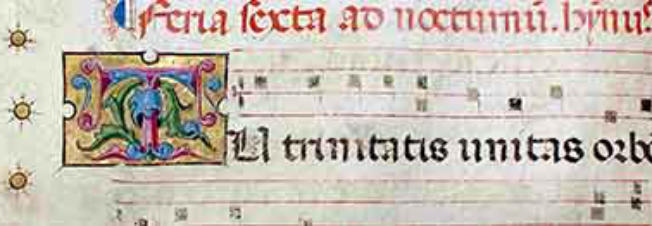 Feria sexta ad nocturnū. hỹnus
TU trinitatis unitas orbē